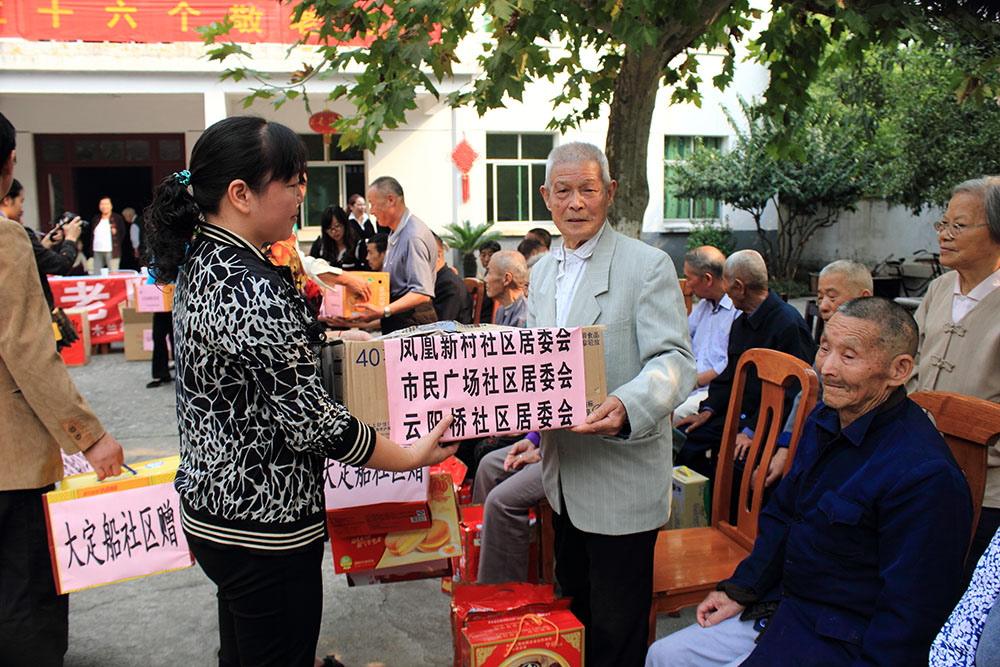 十六个敬老
40
凤凰新村社区居委会
市民广场社区居委会
云阳桥社区居委会
老
大定船社区赠
社区赠